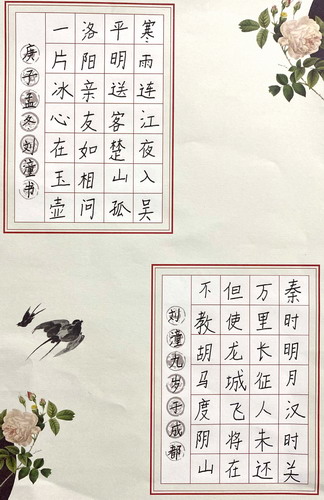 寒雨连江夜入吴
平明送客楚山孤
洛阳亲友如相问
一片冰心在玉壶
庚子孟冬刘潼书
秦时明月汉时关
万里长征人未还
但使龙城飞将在
不教胡马度阴山
刘潼九岁于成都